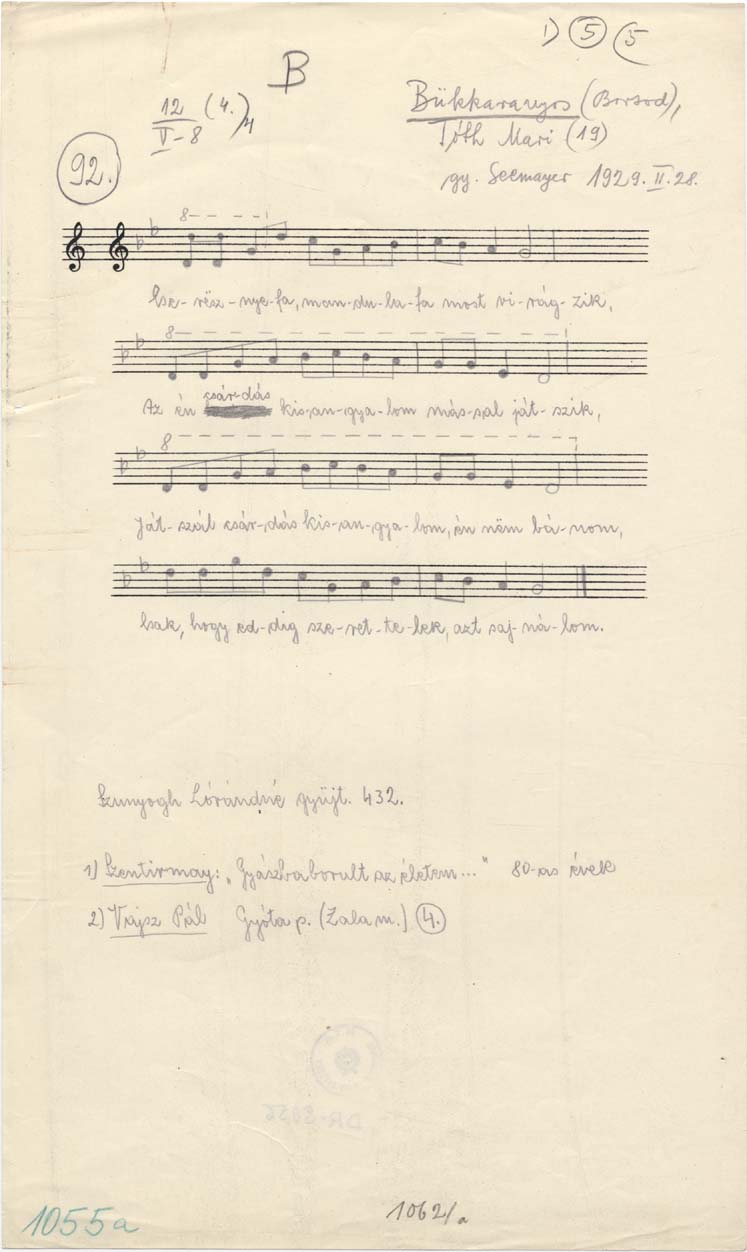 1) 5 (5
B
12 (4.)4
V-8
Bükkaranyos (Borsod),
Tóth Mari (19)
gy. Seemayer 1929. II. 28.
92.
8
Cse-rësz-nye-fa, man-du-la-fa most vi-rág-zik,
8
Az én csár-dás kis-an-gya-lom más-sal ját-szik,
8
Ját-szál csár-dás kis-an-gya-lom, én nëm bá-nom,
Csak, hogy ed-dig sze-ret-te-lek, azt saj-ná-lom.
Szunyogh Lórándné gyüjt. 432.
1) Szentirmay: „Gyászba borult az életem..." 80-as évek
2) Vajsz Pál Gyóta p. (Zala m.) 4.
DR-8056
1055a
1062/a